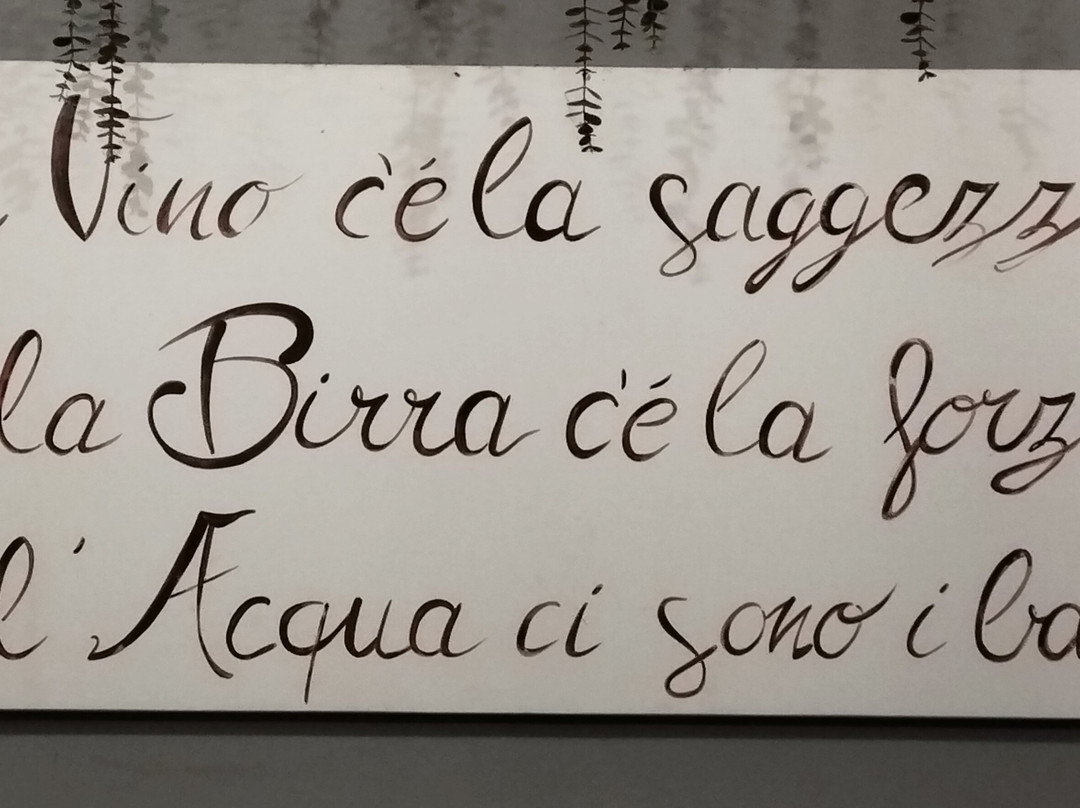 Vino c'é la saggezz
la Birra c'é la forz
l'Acqua ci sono i ba